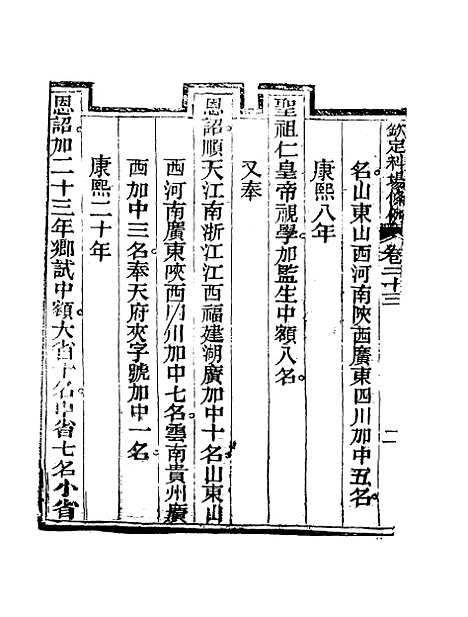 欽定科場條例 卷二十三 二
名山東山西河南陝西廣東四川加中五名
康熙八年
聖祖仁皇帝視學加監生中額八名
又奉
恩詔順天江南浙江江西福建湖廣加中十名山東山
西河南廣東陝西四川加中七名雲南貴州廣
西加中三名奉天府夾字號加中一名
康熙二十年
恩詔加二十三年鄉試中額大省十名中省七名小省